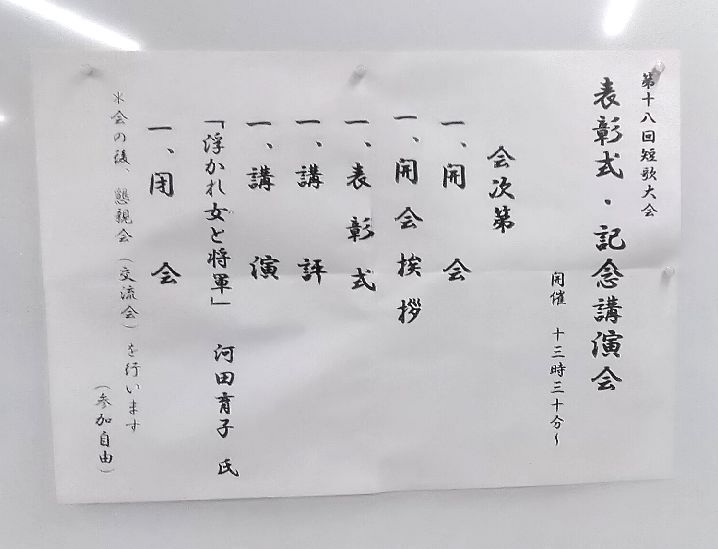 第十八回短歌大会
表彰式・記念講演会
開催 十三時三十分～
会次第
一、開会
一、開会挨拶
一、表彰式
一、講評
一、講演
「浮かれ女と将軍」 河田育子 氏
一、閉会
＊会の後、懇親会（交流会）を行います
（参加自由）